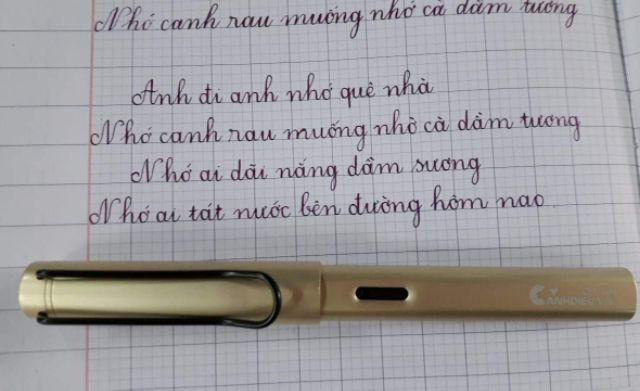 Nhớ canh rau muống nhớ cà dầm tương
Anh đi anh nhớ quê nhà
Nhớ canh rau muống nhớ cà dầm tương
Nhớ ai dãi nắng dầm sương
Nhớ ai tát nước bên đường hôm nao